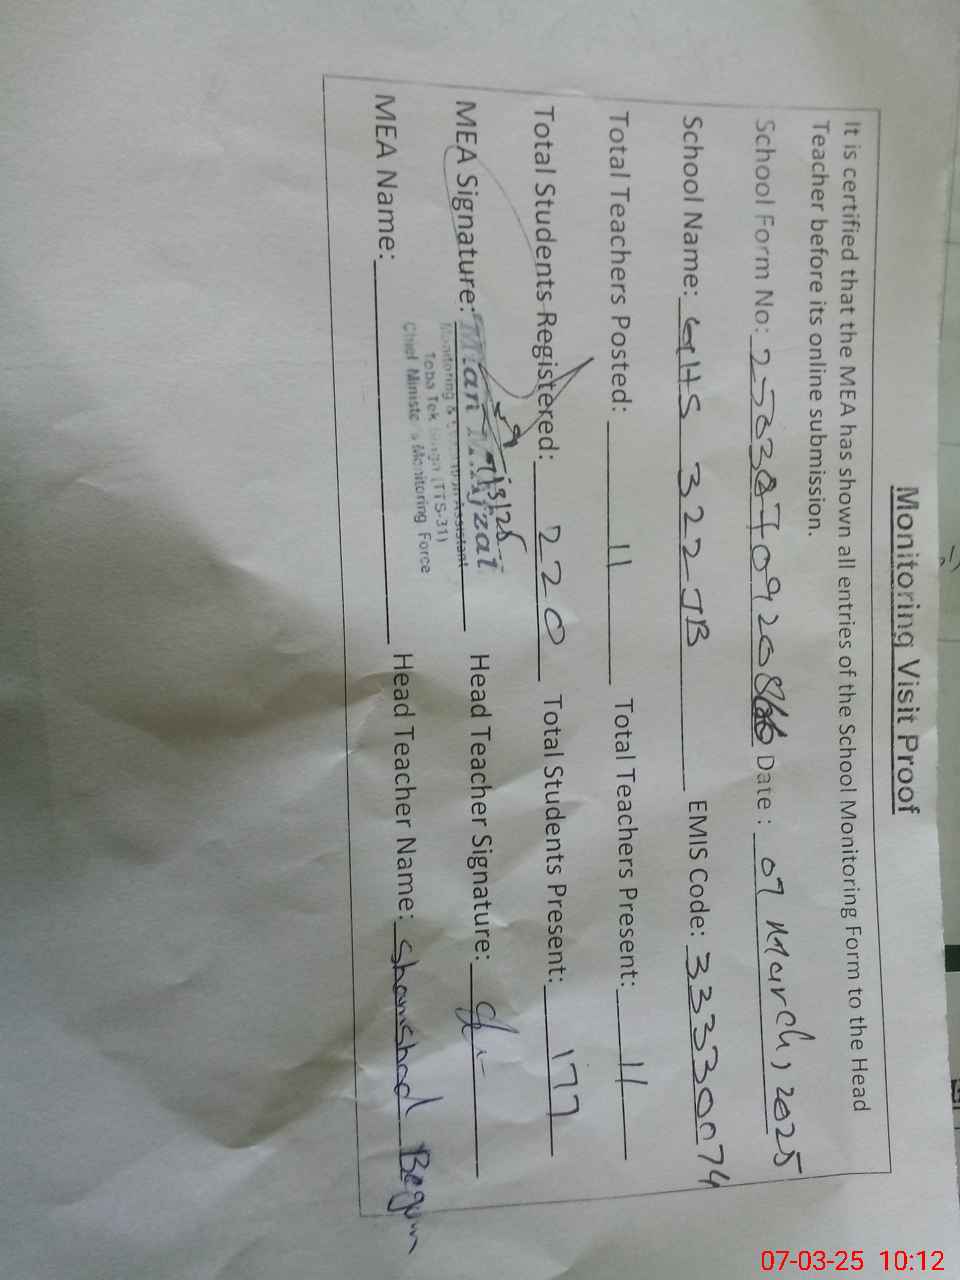 Monitoring Visit Proof
It is certified that the MEA has shown all entries of the School Monitoring Form to the Head
Teacher before its online submission.
School Form No: Date : 07 March, 2025
School Name: GHS 322 JB EMIS Code: 33330074
Total Teachers Posted: 11 Total Teachers Present: 11
Total Students Registered: 220 Total Students Present: 177
MEA Signature: Mian Head Teacher Signature:
Monitoring & Assistant
Toba Tek Singh (TTS-31)
Chief Minister's Monitoring Force
MEA Name: Head Teacher Name: Shamshad Begum
07-03-25 10:12